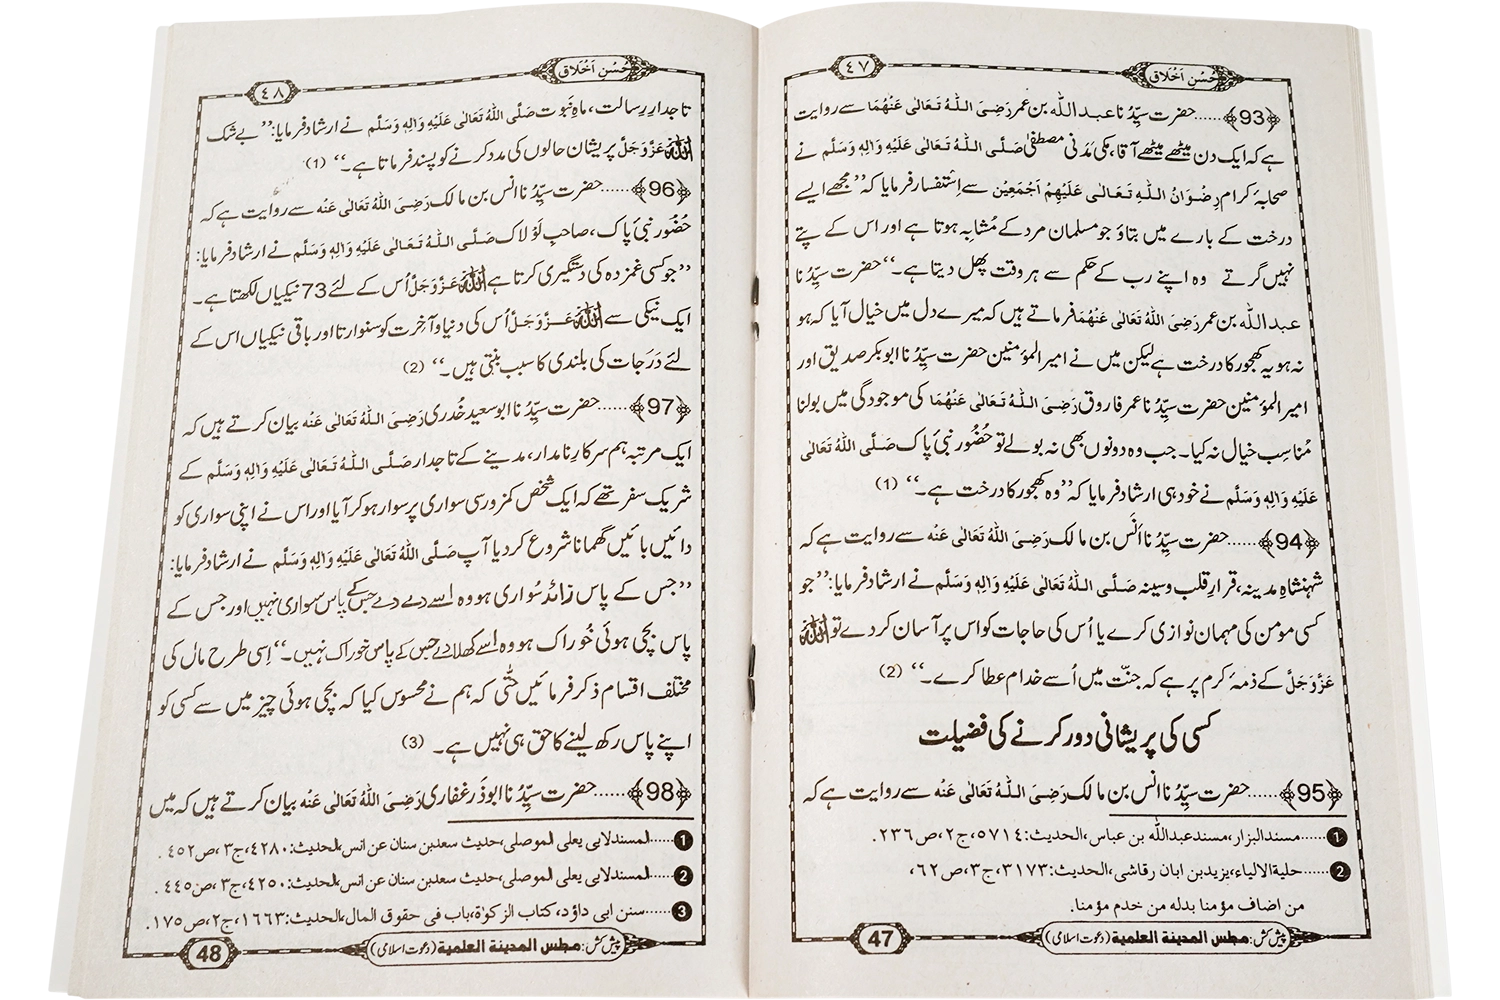 حُسنِ اَخلاق
٤٧
﴿93﴾......حضرت سیِّدُنا عبد اللّٰہ بن عمر رَضِیَ اللہُ تَعَالٰی عَنْہُمَا سے روایت
ہے کہ ایک دن میٹھے میٹھے آقا، مکی مَدَنی مصطفیٰ صَلَّی اللہُ تَعَالٰی عَلَیْہِ وَاٰلِہٖ وَسَلَّم نے
صحابۂ کرام رِضْوَانُ اللہِ تَعَالٰی عَلَیْہِمْ اَجْمَعِیْن سے اِستفسار فرمایا کہ ”مجھے ایسے
درخت کے بارے میں بتاؤ جو مسلمان مرد کے مُشابہ ہوتا ہے اور اس کے پتے
نہیں گرتے وہ اپنے رب کے حکم سے ہر وقت پھل دیتا ہے۔“ حضرت سیِّدُنا
عبد اللّٰہ بن عمر رَضِیَ اللہُ تَعَالٰی عَنْہُمَا فرماتے ہیں کہ میرے دل میں خیال آیا کہ ہو
نہ ہو یہ کھجور کا درخت ہے لیکن میں نے امیر المؤمنین حضرت سیِّدُنا ابو بکر صدیق اور
امیر المؤمنین حضرت سیِّدُنا عمر فاروق رَضِیَ اللہُ تَعَالٰی عَنْہُمَا کی موجودگی میں بولنا
مُناسِب خیال نہ کیا۔ جب وہ دونوں بھی نہ بولے تو حُضُور نبیٔ پاک صَلَّی اللہُ تَعَالٰی
عَلَیْہِ وَاٰلِہٖ وَسَلَّم نے خود ہی ارشاد فرمایا کہ ”وہ کھجور کا درخت ہے۔“ (1)
﴿94﴾......حضرت سیِّدُنا اَنَس بن مالک رَضِیَ اللہُ تَعَالٰی عَنْہ سے روایت ہے کہ
شہنشاہِ مدینہ، قرارِ قلب وسینہ صَلَّی اللہُ تَعَالٰی عَلَیْہِ وَاٰلِہٖ وَسَلَّم نے ارشاد فرمایا: ”جو
کسی مومن کی مہمان نوازی کرے یا اُس کی حاجات کو اس پر آسان کر دے تو اللہ
عَزَّوَجَلَّ کے ذمۂ کرم پر ہے کہ جنّت میں اُسے خدام عطا کرے۔“ (2)
کسی کی پریشانی دور کرنے کی فضیلت
﴿95﴾......حضرت سیِّدُنا انس بن مالک رَضِیَ اللہُ تَعَالٰی عَنْہ سے روایت ہے کہ
1......مسند البزار، مسند عبداللّٰہ بن عباس، الحدیث: ٥٧١٤، ج٢، ص٢٣٦.
2......حلیة الاولیاء، یزید بن ابان رقاشی، الحدیث: ٣١٧٣، ج٣، ص٦٢،
من اضاف مؤمنا بدله من خدم مؤمنا.
پیش کش: مجلس المدینة العلمیة (دعوت اسلامی)
47
حُسنِ اَخلاق
٤٨
تاجدارِ رِسالت، ماہِ نَبوت صَلَّی اللہُ تَعَالٰی عَلَیْہِ وَاٰلِہٖ وَسَلَّم نے ارشاد فرمایا: ”بے شک
اللہ عَزَّوَجَلَّ پریشان حالوں کی مدد کرنے کو پسند فرماتا ہے۔“ (1)
﴿96﴾......حضرت سیِّدُنا انس بن مالک رَضِیَ اللہُ تَعَالٰی عَنْہ سے روایت ہے کہ
حُضُور نبیٔ پاک، صاحبِ لَوْلاک صَلَّی اللہُ تَعَالٰی عَلَیْہِ وَاٰلِہٖ وَسَلَّم نے ارشاد فرمایا:
”جو کسی غمزدہ کی دستگیری کرتا ہے اللہ عَزَّوَجَلَّ اُس کے لئے 73 نیکیاں لکھتا ہے۔
ایک نیکی سے اللہ عَزَّوَجَلَّ اُس کی دنیا و آخرت کو سنوارتا اور باقی نیکیاں اس کے
لئے دَرَجات کی بلندی کا سبب بنتی ہیں۔“ (2)
﴿97﴾......حضرت سیِّدُنا ابو سعید خُدری رَضِیَ اللہُ تَعَالٰی عَنْہ بیان کرتے ہیں کہ
ایک مرتبہ ہم سرکارِ نامدار، مدینے کے تاجدار صَلَّی اللہُ تَعَالٰی عَلَیْہِ وَاٰلِہٖ وَسَلَّم کے
شریک سفر تھے کہ ایک شخص کمزور سی سواری پر سوار ہو کر آیا اور اس نے اپنی سواری کو
دائیں بائیں گھمانا شروع کر دیا آپ صَلَّی اللہُ تَعَالٰی عَلَیْہِ وَاٰلِہٖ وَسَلَّم نے ارشاد فرمایا:
”جس کے پاس زائد سُواری ہو وہ اسے دے دے جس کے پاس سواری نہیں اور جس کے
پاس بچی ہوئی خُوراک ہو وہ اسے کھلا دے جس کے پاس خوراک نہیں۔“ اِسی طرح مال کی
مختلف اقسام ذکر فرمائیں حتّٰی کہ ہم نے محسوس کیا کہ بچی ہوئی چیز میں سے کسی کو
اپنے پاس رکھ لینے کا حق ہی نہیں ہے۔ (3)
﴿98﴾......حضرت سیِّدُنا ابو ذَر غفاری رَضِیَ اللہُ تَعَالٰی عَنْہ بیان کرتے ہیں کہ میں
1......المسند لابی یعلی الموصلی، حدیث سعد بن سنان عن انس، الحدیث: ٤٢٨٠، ج٣، ص٤٥٢.
2......المسند لابی یعلی الموصلی، حدیث سعد بن سنان عن انس، الحدیث: ٤٢٥٠، ج٣، ص٤٤٥.
3......سنن ابی داؤد، کتاب الزکوٰة، باب فی حقوق المال، الحدیث: ١٦٦٣، ج٢، ص١٧٥.
پیش کش: مجلس المدینة العلمیة (دعوت اسلامی)
48